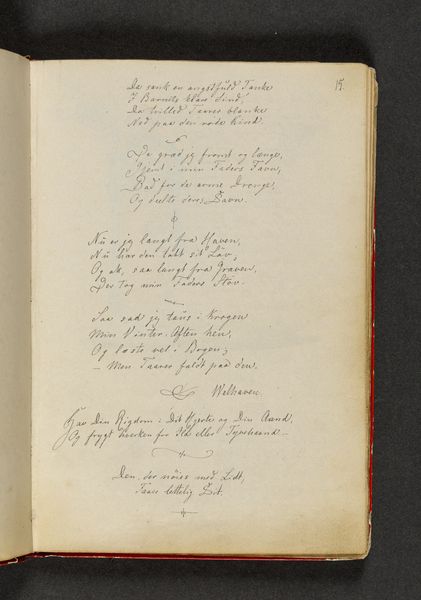 15.
Da sank en angstfuld Tanke
I Barnets klare Sind,
Da trilled Taarer blanke
Ned paa den røde Kind.
Da græd jeg fromt og længe,
Gjemt i min Faders Favn,
Bad for de arme Drenge,
Og deelte deres Savn.
Nu er jeg langt fra Haven,
Nu har den tabt sit Løv,
Og ak, saa langt fra Graven,
Der tog min Faders Støv.
Saa sad jeg taus i Krogen
Min Vinter-Aften hen,
Og læste vel i Bogen;
– Men Taarer faldt paa den.
Welhaven.
Hav Din Rigdom i Dit Hjerte og Din Aand,
Og frygt hverken for Ild eller Tyvehaand –
Den, der nøies med Lidt,
Faaer lettelig Sit.